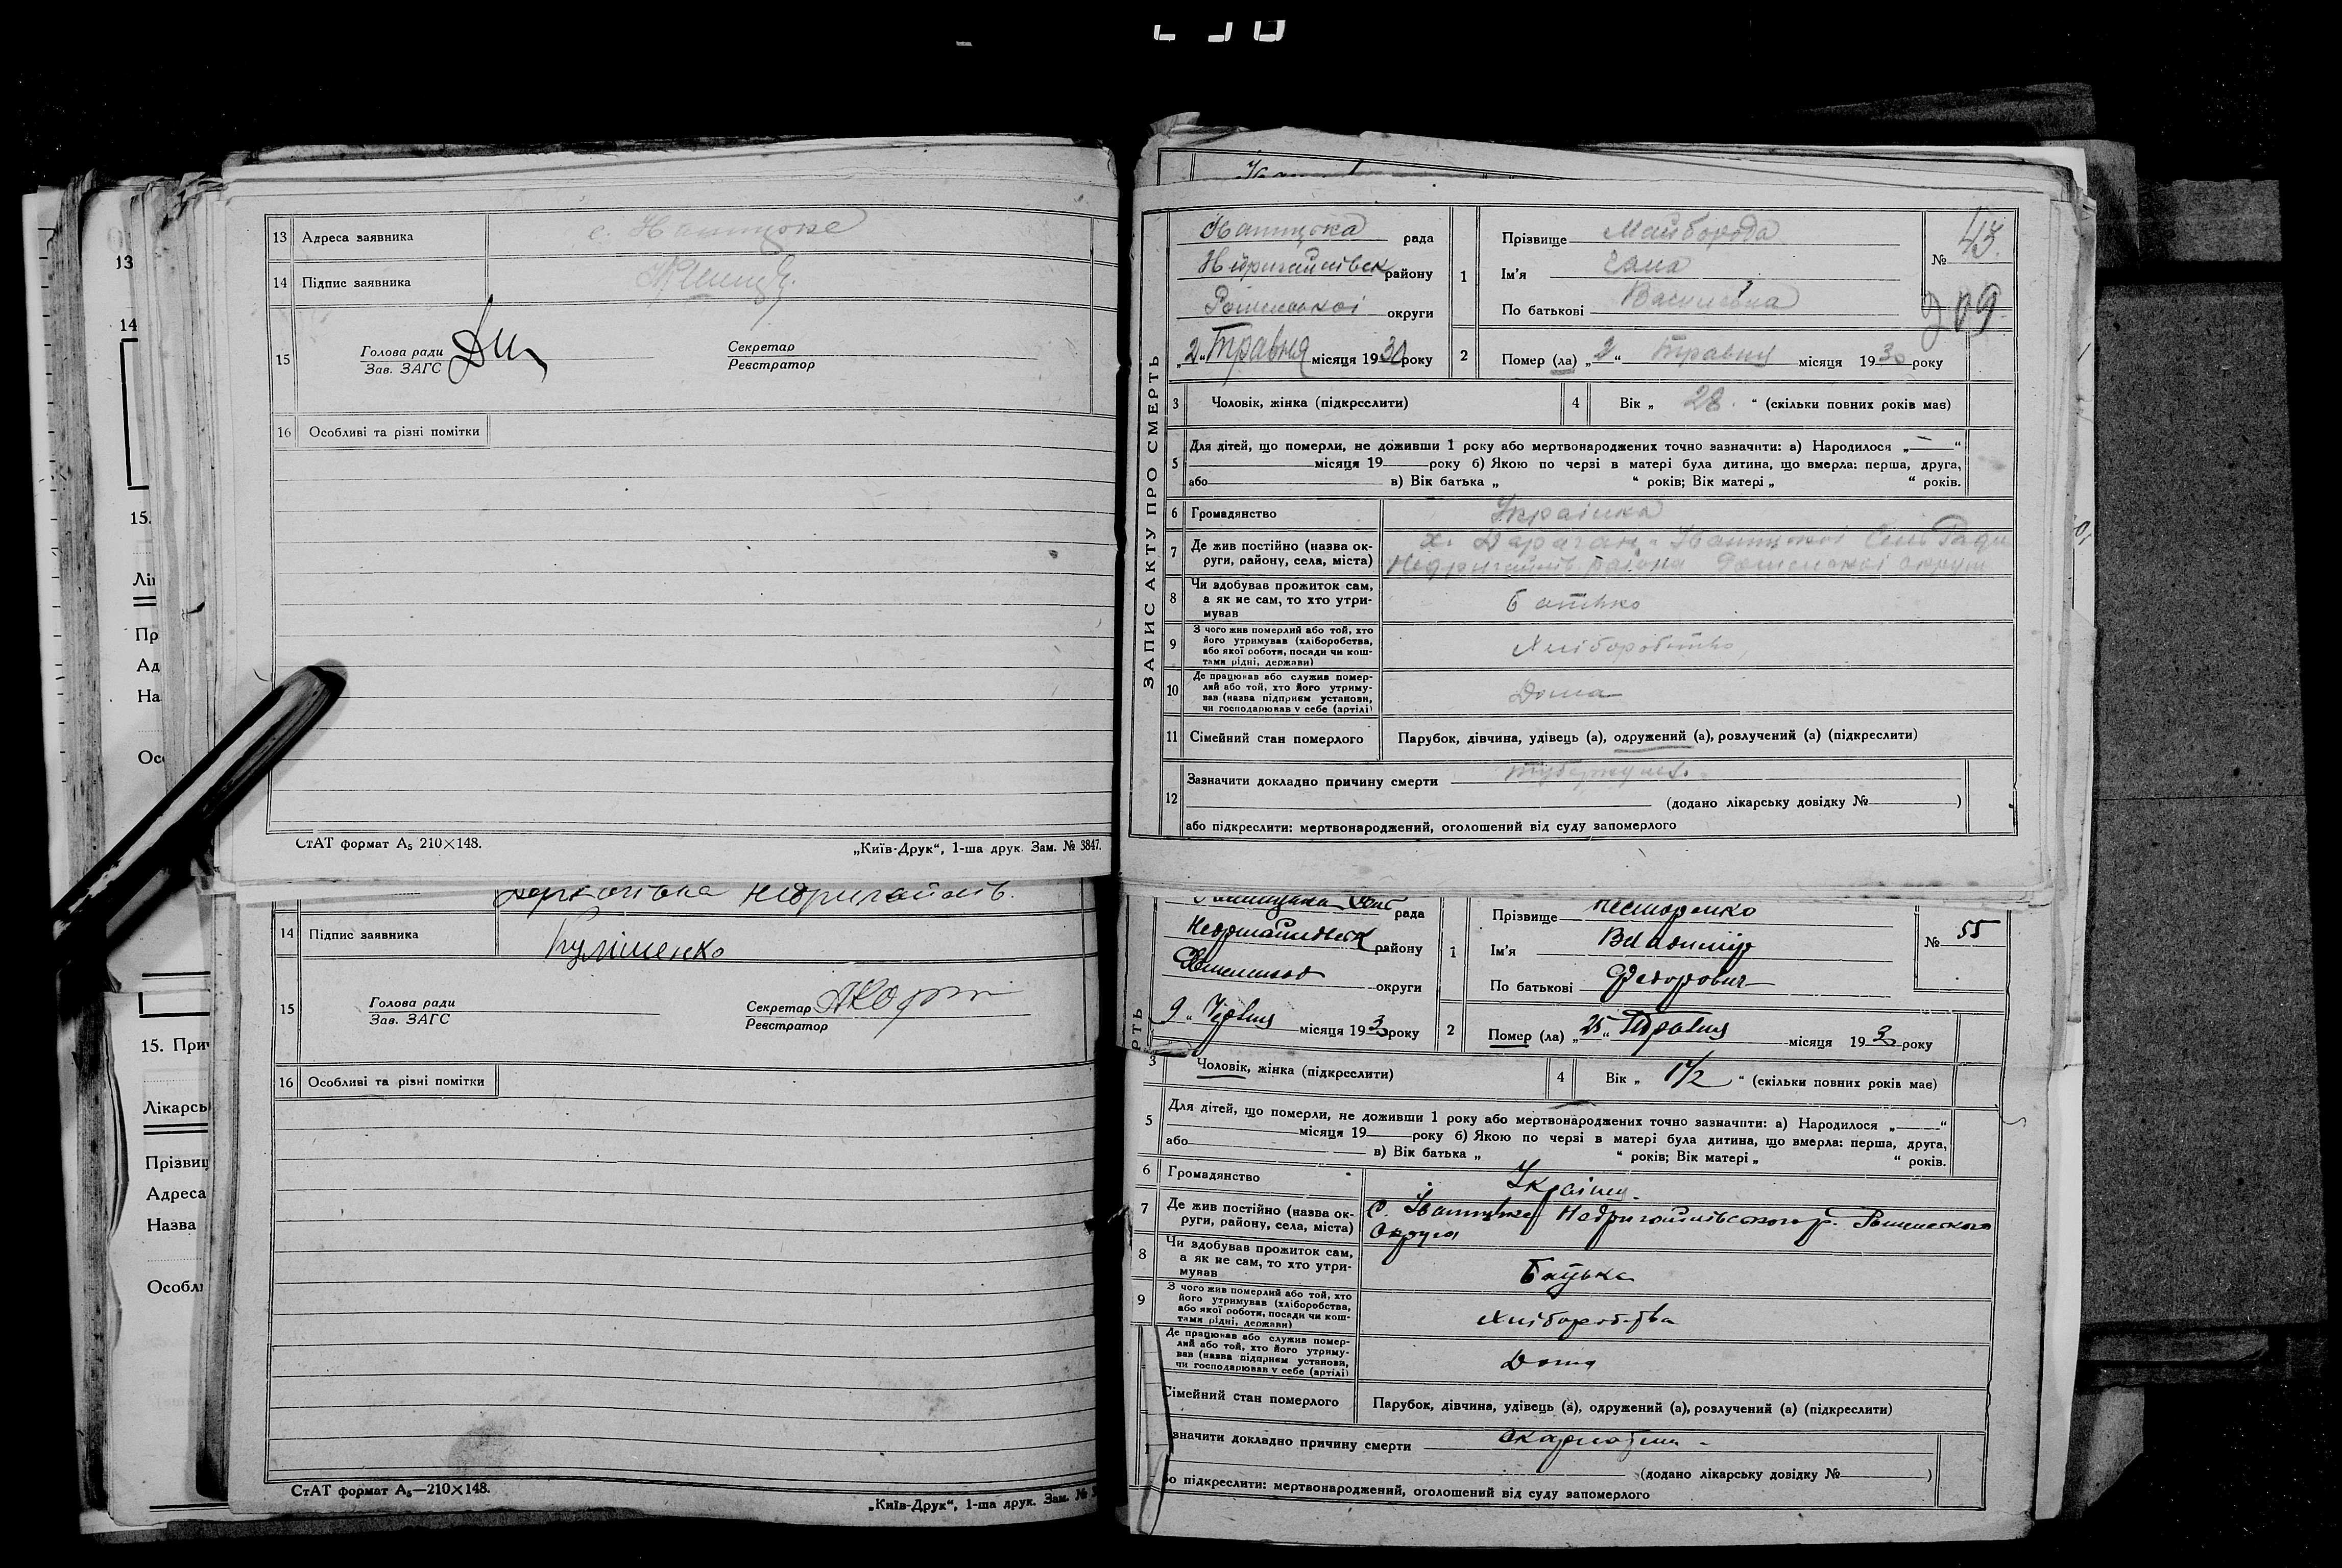 13 Адреса заявника с.
14 Підпис заявника
15 Голова ради
Зав. ЗАГС
Секретар
Реєстратор
16 Особливі та різні помітки
СтАТ формат А₅ 210×148.
„Київ-Друк“, 1-ша друк. Зам. № 3847.
Недригайлів.
14 Підпис заявника Кулішенко
15 Голова ради
Зав. ЗАГС
Секретар
Реєстратор
16 Особливі та різні помітки
СтАТ формат А₅—210×148.
„Київ-Друк“, 1-ша друк. Зам. №
13
14
15.
Лі
Пр
Ад
На
Ос
15. При
Лікарсь
Прізвищ
Адреса
Назва
Особл
ЗАПИС АКТУ ПРО СМЕРТЬ
рада
Недригайлівск району
Роменської округи
„2“ Травня місяця 1930 року
1 Прізвище Майборода
Ім'я
По батькові Василівна
№ 43.
209
2 Помер (ла) „2“ Травня місяця 1930 року
3 Чоловік, жінка (підкреслити)
4 Вік „28.“ (скільки повних років має)
5 Для дітей, що померли, не доживши 1 року або мертвонароджених точно зазначити: а) Народилося „—“
місяця 19 року б) Якою по черзі в матері була дитина, що вмерла: перша, друга,
або в) Вік батька „ “ років; Вік матері „ “ років.
6 Громадянство Українка
7 Де жив постійно (назва ок-
руги, району, села, міста)
х. Сіль Ради
Недригайлів. району Роменської округи
8 Чи здобував прожиток сам,
а як не сам, то хто утри-
мував
Батько
9 З чого жив померлий або той, хто
його утримував (хліборобства,
або якої роботи, посади чи кош-
тами рідні, держави)
Хліборобство
10 Де працював або служив помер-
лий або той, хто його утриму-
вав (назва підприєм установи,
чи господарював у себе (артілі)
Дома
11 Сімейний стан померлого Парубок, дівчина, удівець (а), одружений (а), розлучений (а) (підкреслити)
12 Зазначити докладно причину смерти туберкульоз.
(додано лікарську довідку № )
або підкреслити: мертвонароджений, оголошений від суду запомерлого
РТЬ
рада
району
округи
9 „ Червня місяця 1930 року
1 Прізвище Нестеренко
Ім'я Владимір
По батькові Федорович
№ 55
2 Помер (ла) „25“ Травня місяця 1930 року
3 Чоловік, жінка (підкреслити)
4 Вік „ 1½ “ (скільки повних років має)
5 Для дітей, що померли, не доживши 1 року або мертвонароджених точно зазначити: а) Народилося „ “
місяця 19 року б) Якою по черзі в матері була дитина, що вмерла: перша, друга,
або в) Вік батька „ “ років; Вік матері „ “ років.
6 Громадянство
7 Де жив постійно (назва ок-
руги, району, села, міста)
с. Недригайлівського р. Роменского
Округа
8 Чи здобував прожиток сам,
а як не сам, то хто утри-
мував
Батько
9 З чого жив померлий або той, хто
його утримував (хліборобства,
або якої роботи, посади чи кош-
тами рідні, держави)
Хліборобства
Де працював або служив помер-
лий або той, хто його утриму-
вав (назва підприєм установи,
чи господарював у себе (артілі)
Дома
Сімейний стан померлого Парубок, дівчина, удівець (а), одружений (а), розлучений (а) (підкреслити)
значити докладно причину смерти скарлатина
(додано лікарську довідку № )
бо підкреслити: мертвонароджений, оголошений від суду запомерлого